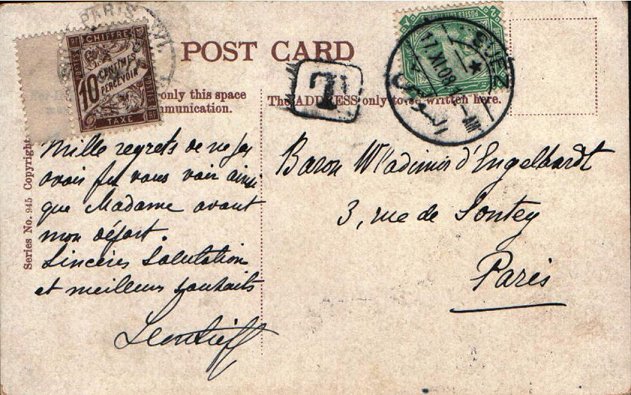 PARIS
CHIFFRE
10
CENTIMES
A
PERCEVOIR
TAXE
POST CARD
SUEZ
17 XI 08
T
only this space
The ADDRESS only to be written here.
Series No. 945 Copyright
Mille regrets de ne pas
avoir pu vous voir ainsi
que Madame avant
mon départ.
Sincères Salutation
et meilleurs souhaits
Leontieff
Baron Wladimir d'Engelhardt
3, rue de Sontey
Paris